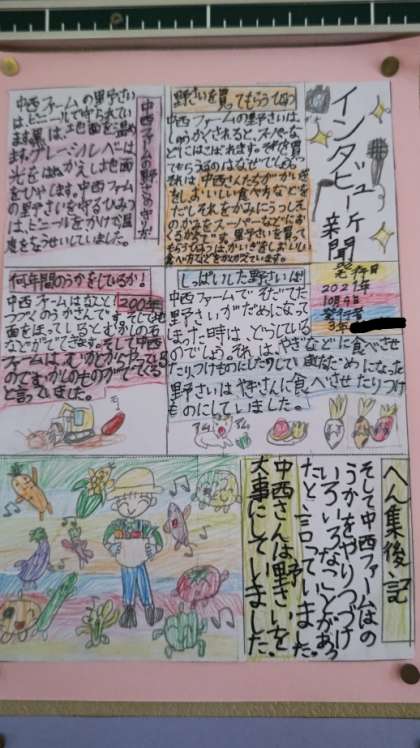 インタビュー新聞
発行日
2021年
10月9日
発行者
3年
野さいを買ってもらうひみつ
中西ファームの野さいは、
しゅうかくされると、スーパーな
どにはこばれます。
中西ファームの野さいの守り方
中西ファームの野さい
はビニールで守られてい
ます。黒は、地面を温め
ます。グレーシルバーは
光をはねかえし地面
をひやします。中西ファーム
の野さいを守るひみつ
は、ビニールをかけて温
度をちょうせいしていました。
しっぱいした野さいは?
中西ファームでそだてた
野さいがだめになって
しまった時は、どうしている
のでしょう。それは、やぎなどに食べさせ
たりつけものにしたりしていました。だめになった
野さいはやぎさんに食べさせたりつけ
ものにしていました。
何年間のうかをしているか?
中西ファームはなんと200年
つづくのうかさんです。そして地
面をほっているとむかしの石
などがでてきます。そして中西
ファームは、むかしからやっている
のでむかしのものがでている
と言っていました。
へん集後記
そして中西ファームはの
うかをやりつづけ
いろいろなことがあっ
たと言っていました。
中西さんは野さいを
大事にしていました。